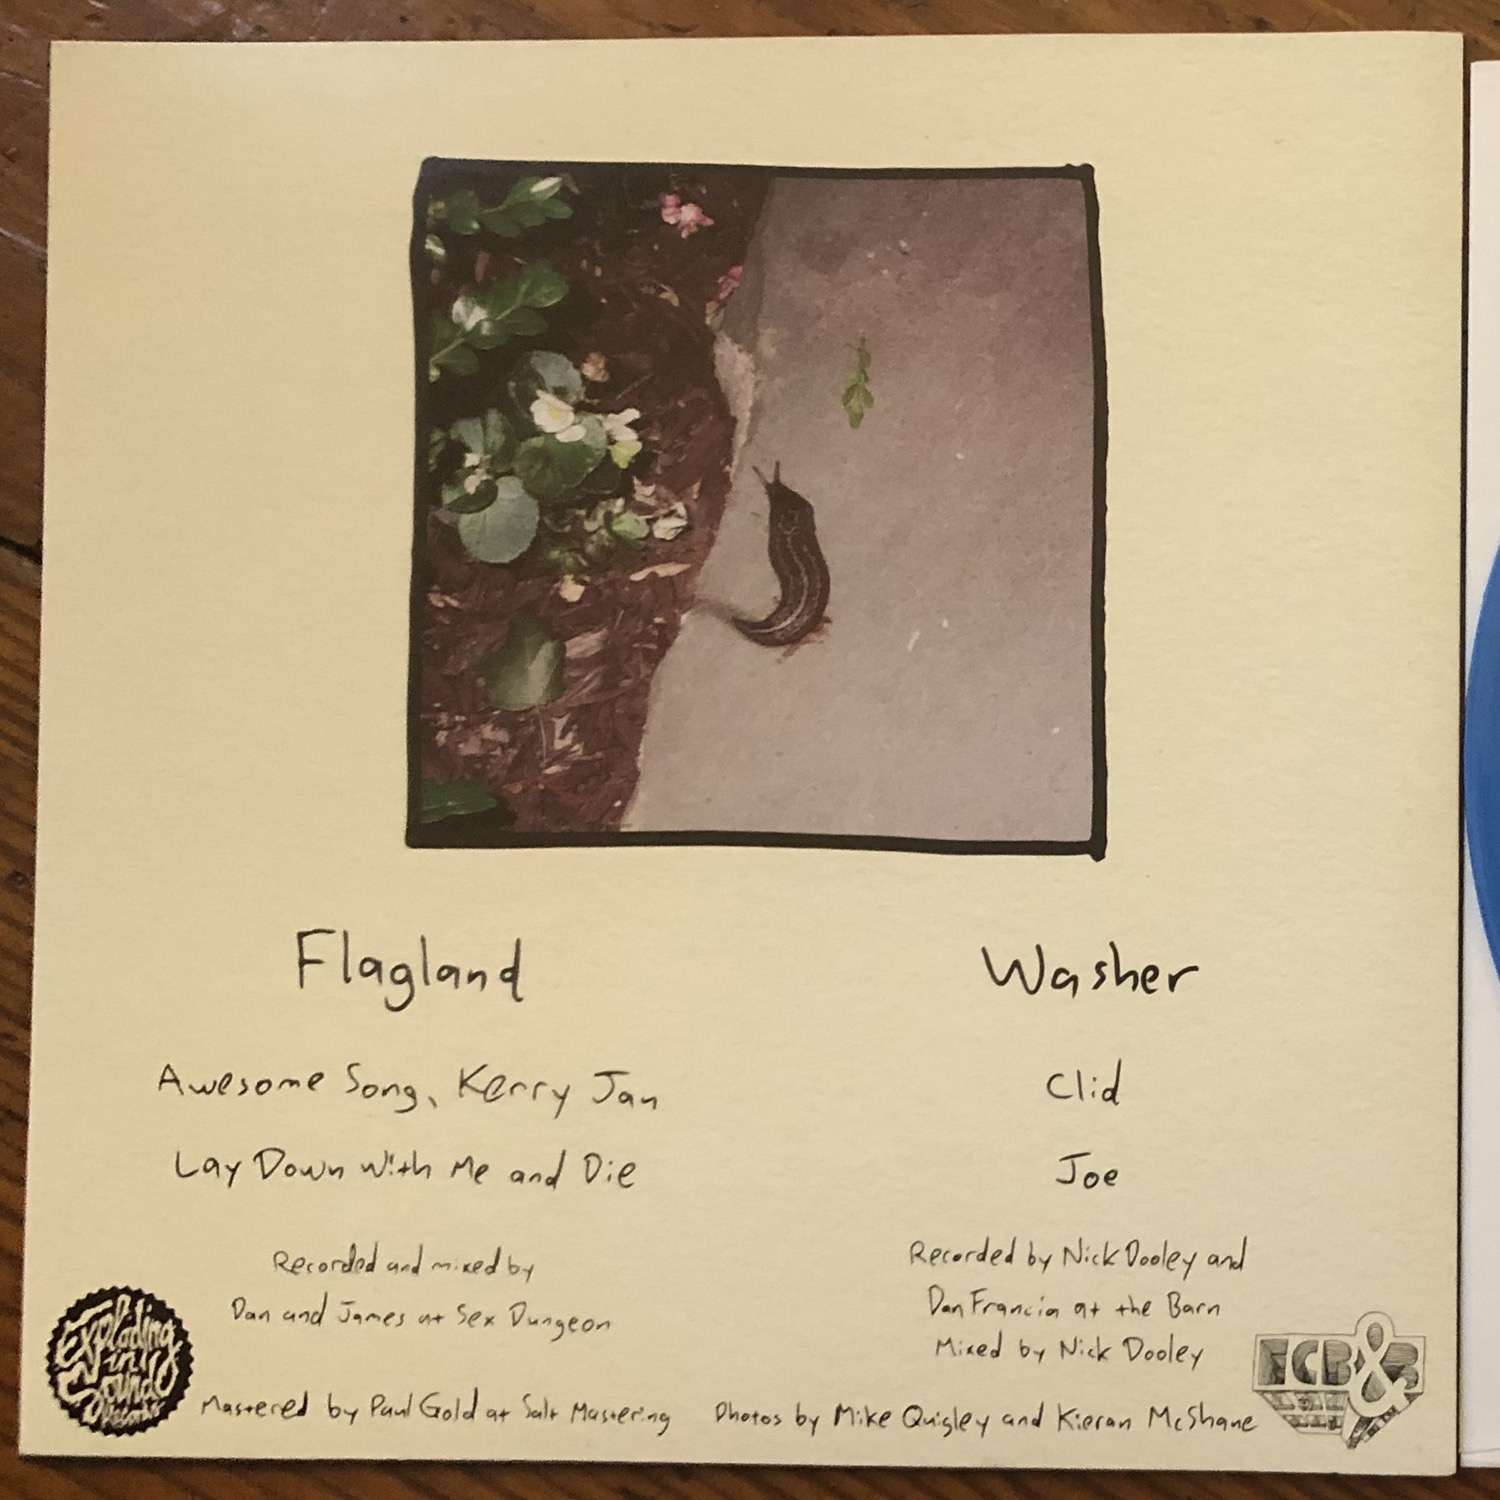 Flagland
Awesome Song, Kerry Jan
Lay Down With Me and Die
Recorded and mixed by
Dan and James at Sex Dungeon
Washer
Clid
Joe
Recorded by Nick Dooley and
Dan Francia at the Barn
Mixed by Nick Dooley
Mastered by Paul Gold at Salt Mastering
Photos by Mike Quigley and Kieran McShane
Exploding
in
Sound
Records